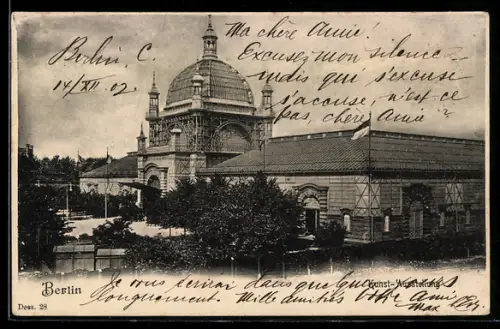 Berlin, C.
14/XII. 02.
Ma chère Amie!
Excusez mon silence
mais qui s'excuse
s'accuse, n'est-ce
pas, chère Amie?
Je vous écrirai dans quelques jours
longuement. Mille amitiés Votre Ami
Max
Berlin
Kunst-Ausstellung
Dess. 28